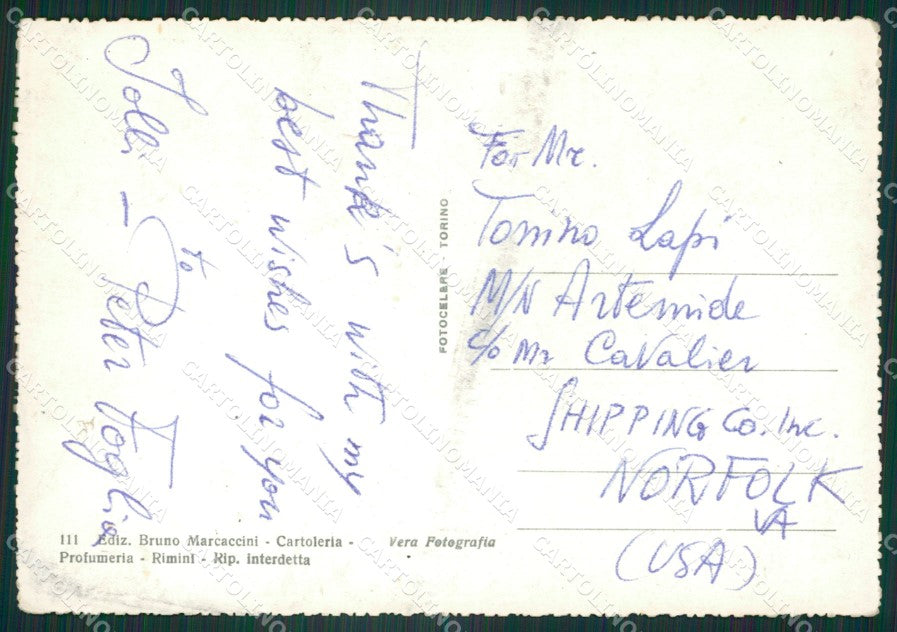 Thank's with my
best wishes for you
to
Peter
For Mr.
Tonino Lapi
M/N Artemide
c/o Mr Cavalier
SHIPPING Co. Inc.
NORFOLK
VA
(USA)
FOTOCELERE TORINO
111 Ediz. Bruno Marcaccini - Cartoleria -
Profumeria - Rimini - Rip. interdetta
Vera Fotografia
CARTOLINOMANIA